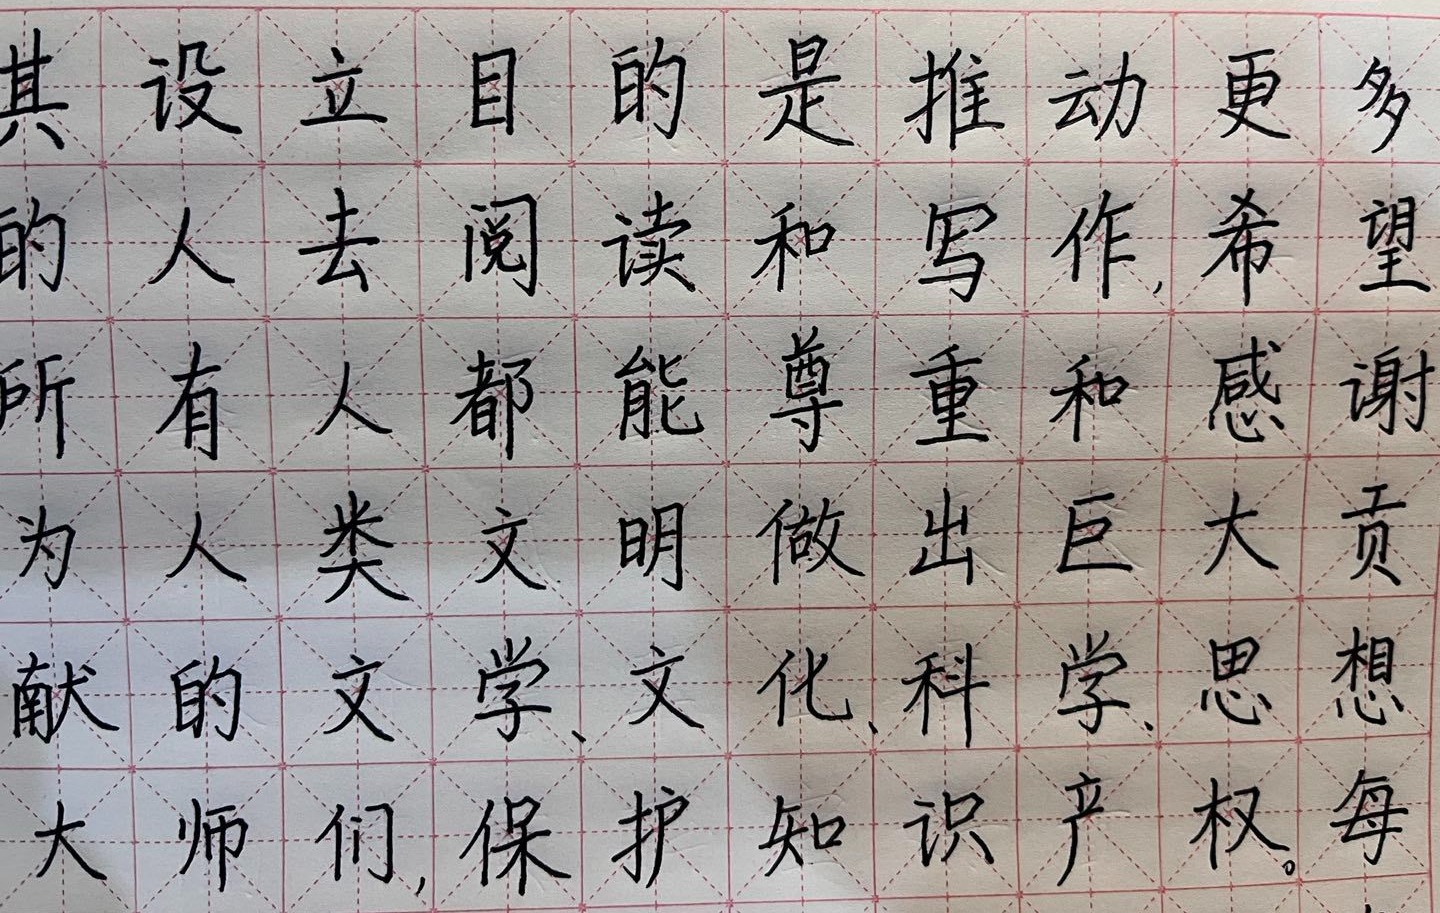 其设立目的是推动更多
的人去阅读和写作,希望
所有人都能尊重和感谢
为人类文明做出巨大贡
献的文学、文化、科学、思想
大师们,保护知识产权。每